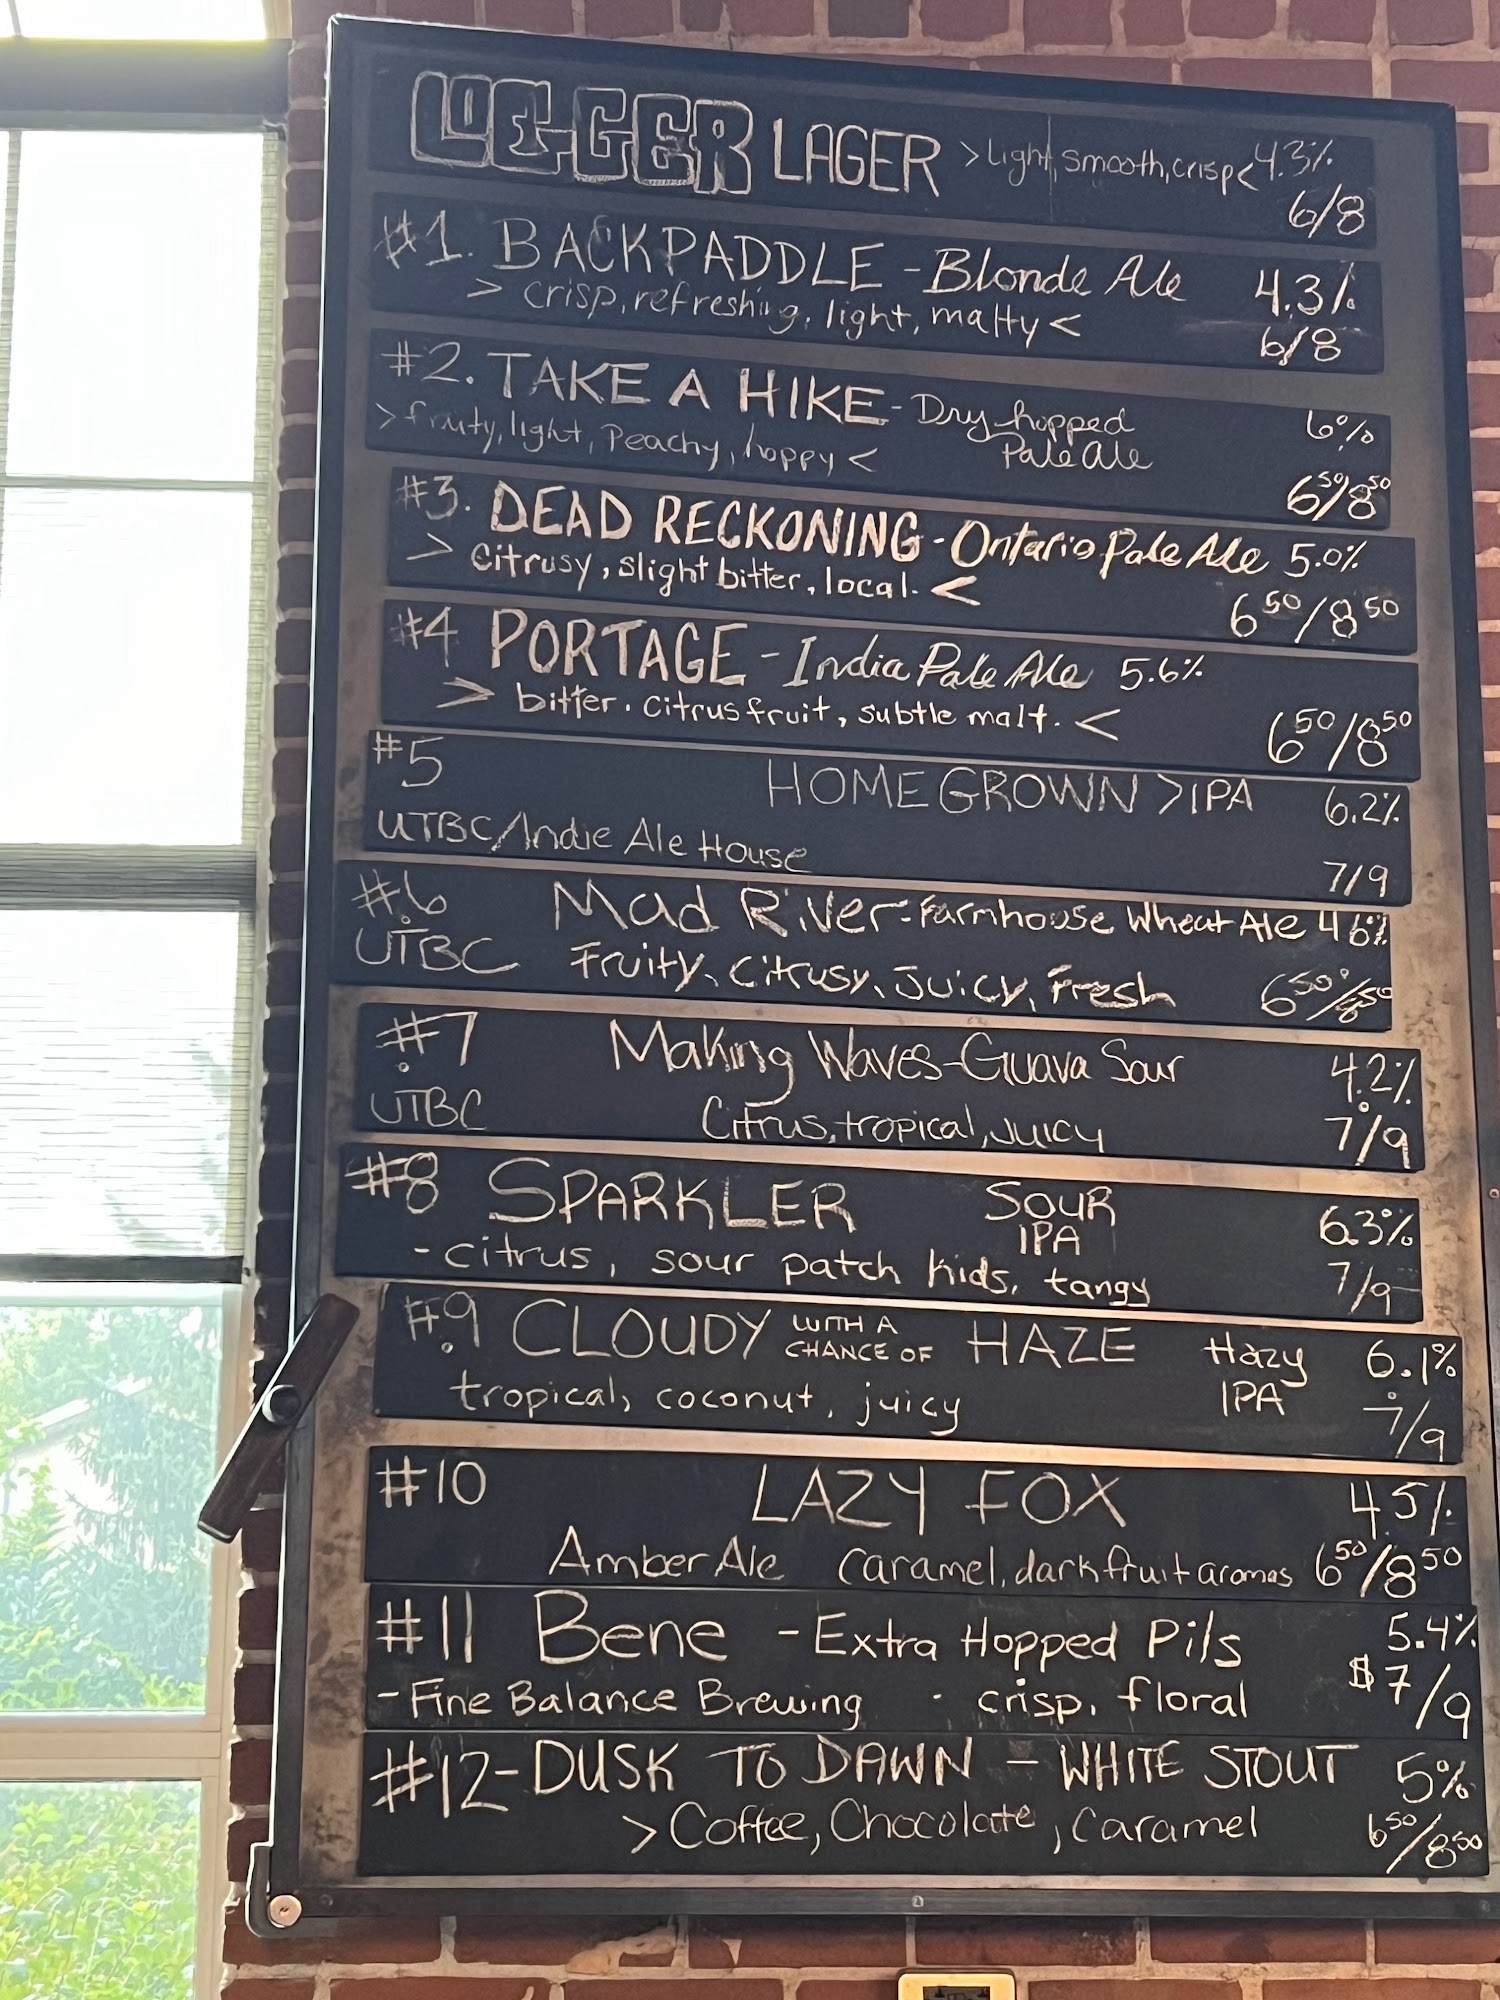 LOGGER LAGER >Light, smooth, crisp< 4.3%
6/8
#1. BACKPADDLE - Blonde Ale 4.3%
> crisp, refreshing, light, malty <
6/8
#2. TAKE A HIKE - Dry-hopped 6%
>fruity, light, Peachy, hoppy < Pale Ale
6 50/8 50
#3. DEAD RECKONING - Ontario Pale Ale 5.0%
> citrusy, slight bitter, local. <
6 50/8 50
#4 PORTAGE - India Pale Ale 5.6%
> bitter. citrus fruit, subtle malt. <
6 50/8 50
#5 HOMEGROWN >IPA 6.2%
UTBC/Indie Ale House
7/9
#6 Mad River - Farmhouse Wheat Ale 4.6%
UTBC Fruity, Citrusy, Juicy, Fresh 6 50/8 50
#7 Making Waves - Guava Sour 4.2%
UTBC Citrus, tropical, juicy 7/9
#8 SPARKLER SOUR 6.3%
IPA
- citrus, sour patch kids, tangy 7/9
#9 CLOUDY WITH A CHANCE OF HAZE Hazy 6.1%
tropical, coconut, juicy IPA 7/9
#10 LAZY FOX 4.5%
Amber Ale Caramel, dark fruit aromas 6 50/8 50
#11 Bene - Extra Hopped Pils 5.4%
- Fine Balance Brewing · crisp, floral $7/9
#12 - DUSK TO DAWN - WHITE STOUT 5%
> Coffee, Chocolate, Caramel 6 50/8 50